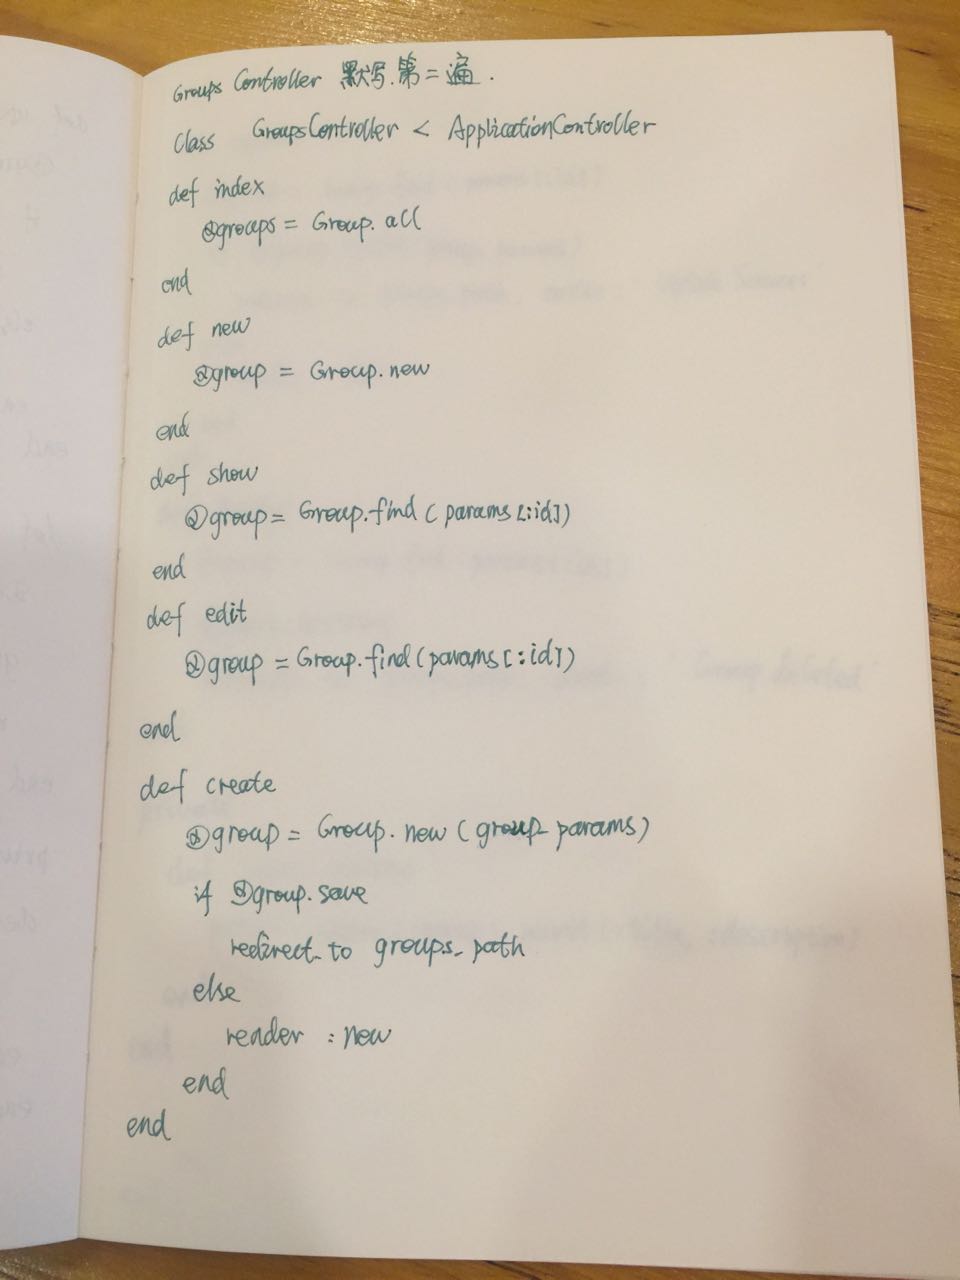 Groups Controller 默写.第二遍.
class GroupsController < ApplicationController
def index
@groups = Group.all
end
def new
@group = Group.new
end
def show
@group = Group.find(params[:id])
end
def edit
@group = Group.find(params[:id])
end
def create
@group = Group.new(group_params)
if @group.save
redirect_to groups_path
else
render :new
end
end